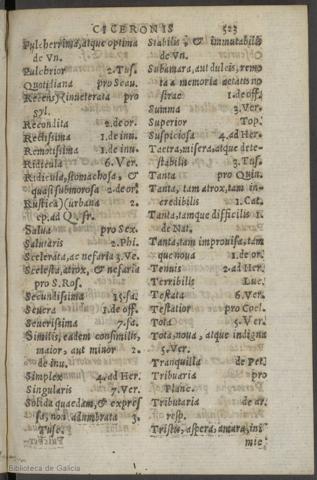 CICERONIS 523
Pulcherrima, atque optima
de Vn.
Pulchrior 2. Tus.
Quotidiana pro Scau.
Recens)(inueterata pro
syl.
Recondita 2. de or.
Rectissima 1. de inu.
Remotissima 1. de inu.
Ridicula 6. Ver.
Ridicula, stomachosa, &
quasi submorosa 2. de or.
Rustica)(urbana 2.
ep. ad Q. fr.
Salua pro Sex.
Salutaris 2. Phi.
Scelerata, ac nefaria 3. Ve.
Scelesta, atrox, & nefaria
pro S. Ros.
Secundissima 15. fa.
Seuera 1. de off.
Seuerissima 7. fa.
Similis, eadem consimilis,
maior, aut minor 2.
de inu.
Simplex 4. ad Her.
Singularis 7. Ver.
Solida quaedam, & expres
sa, non adumbrata 3.
Tusc.
Stabilis, & immutabilis
de Vn.
Subamara, aut dulcis, remo
ta a memoria aetatis no
strae 1. de off.
Summa 3. Ver.
Superior Top.
Suspiciosa 4. ad Her.
Taetra, misera, atque dete-
stabilis 3. Tus.
Tanta pro Quin.
Tanta, tam atrox, tam in-
credibilis 1. Cat.
Tanta, tamque difficilis 1.
de Nat.
Tanta, tam improuisa, tam
que noua 1. de or.
Tenuis 2. ad Her.
Terribilis Luc.
Testata 6. Ver.
Testatior pro Coel.
Tota 5. Ver.
Tota, noua, atque indigna
5. Ver.
Tranquilla de Pet.
Tribuaria pro
Planc.
Tributaria de ar.
resp.
Tristis, aspera, amara, ini
mic
Biblioteca de Galicia